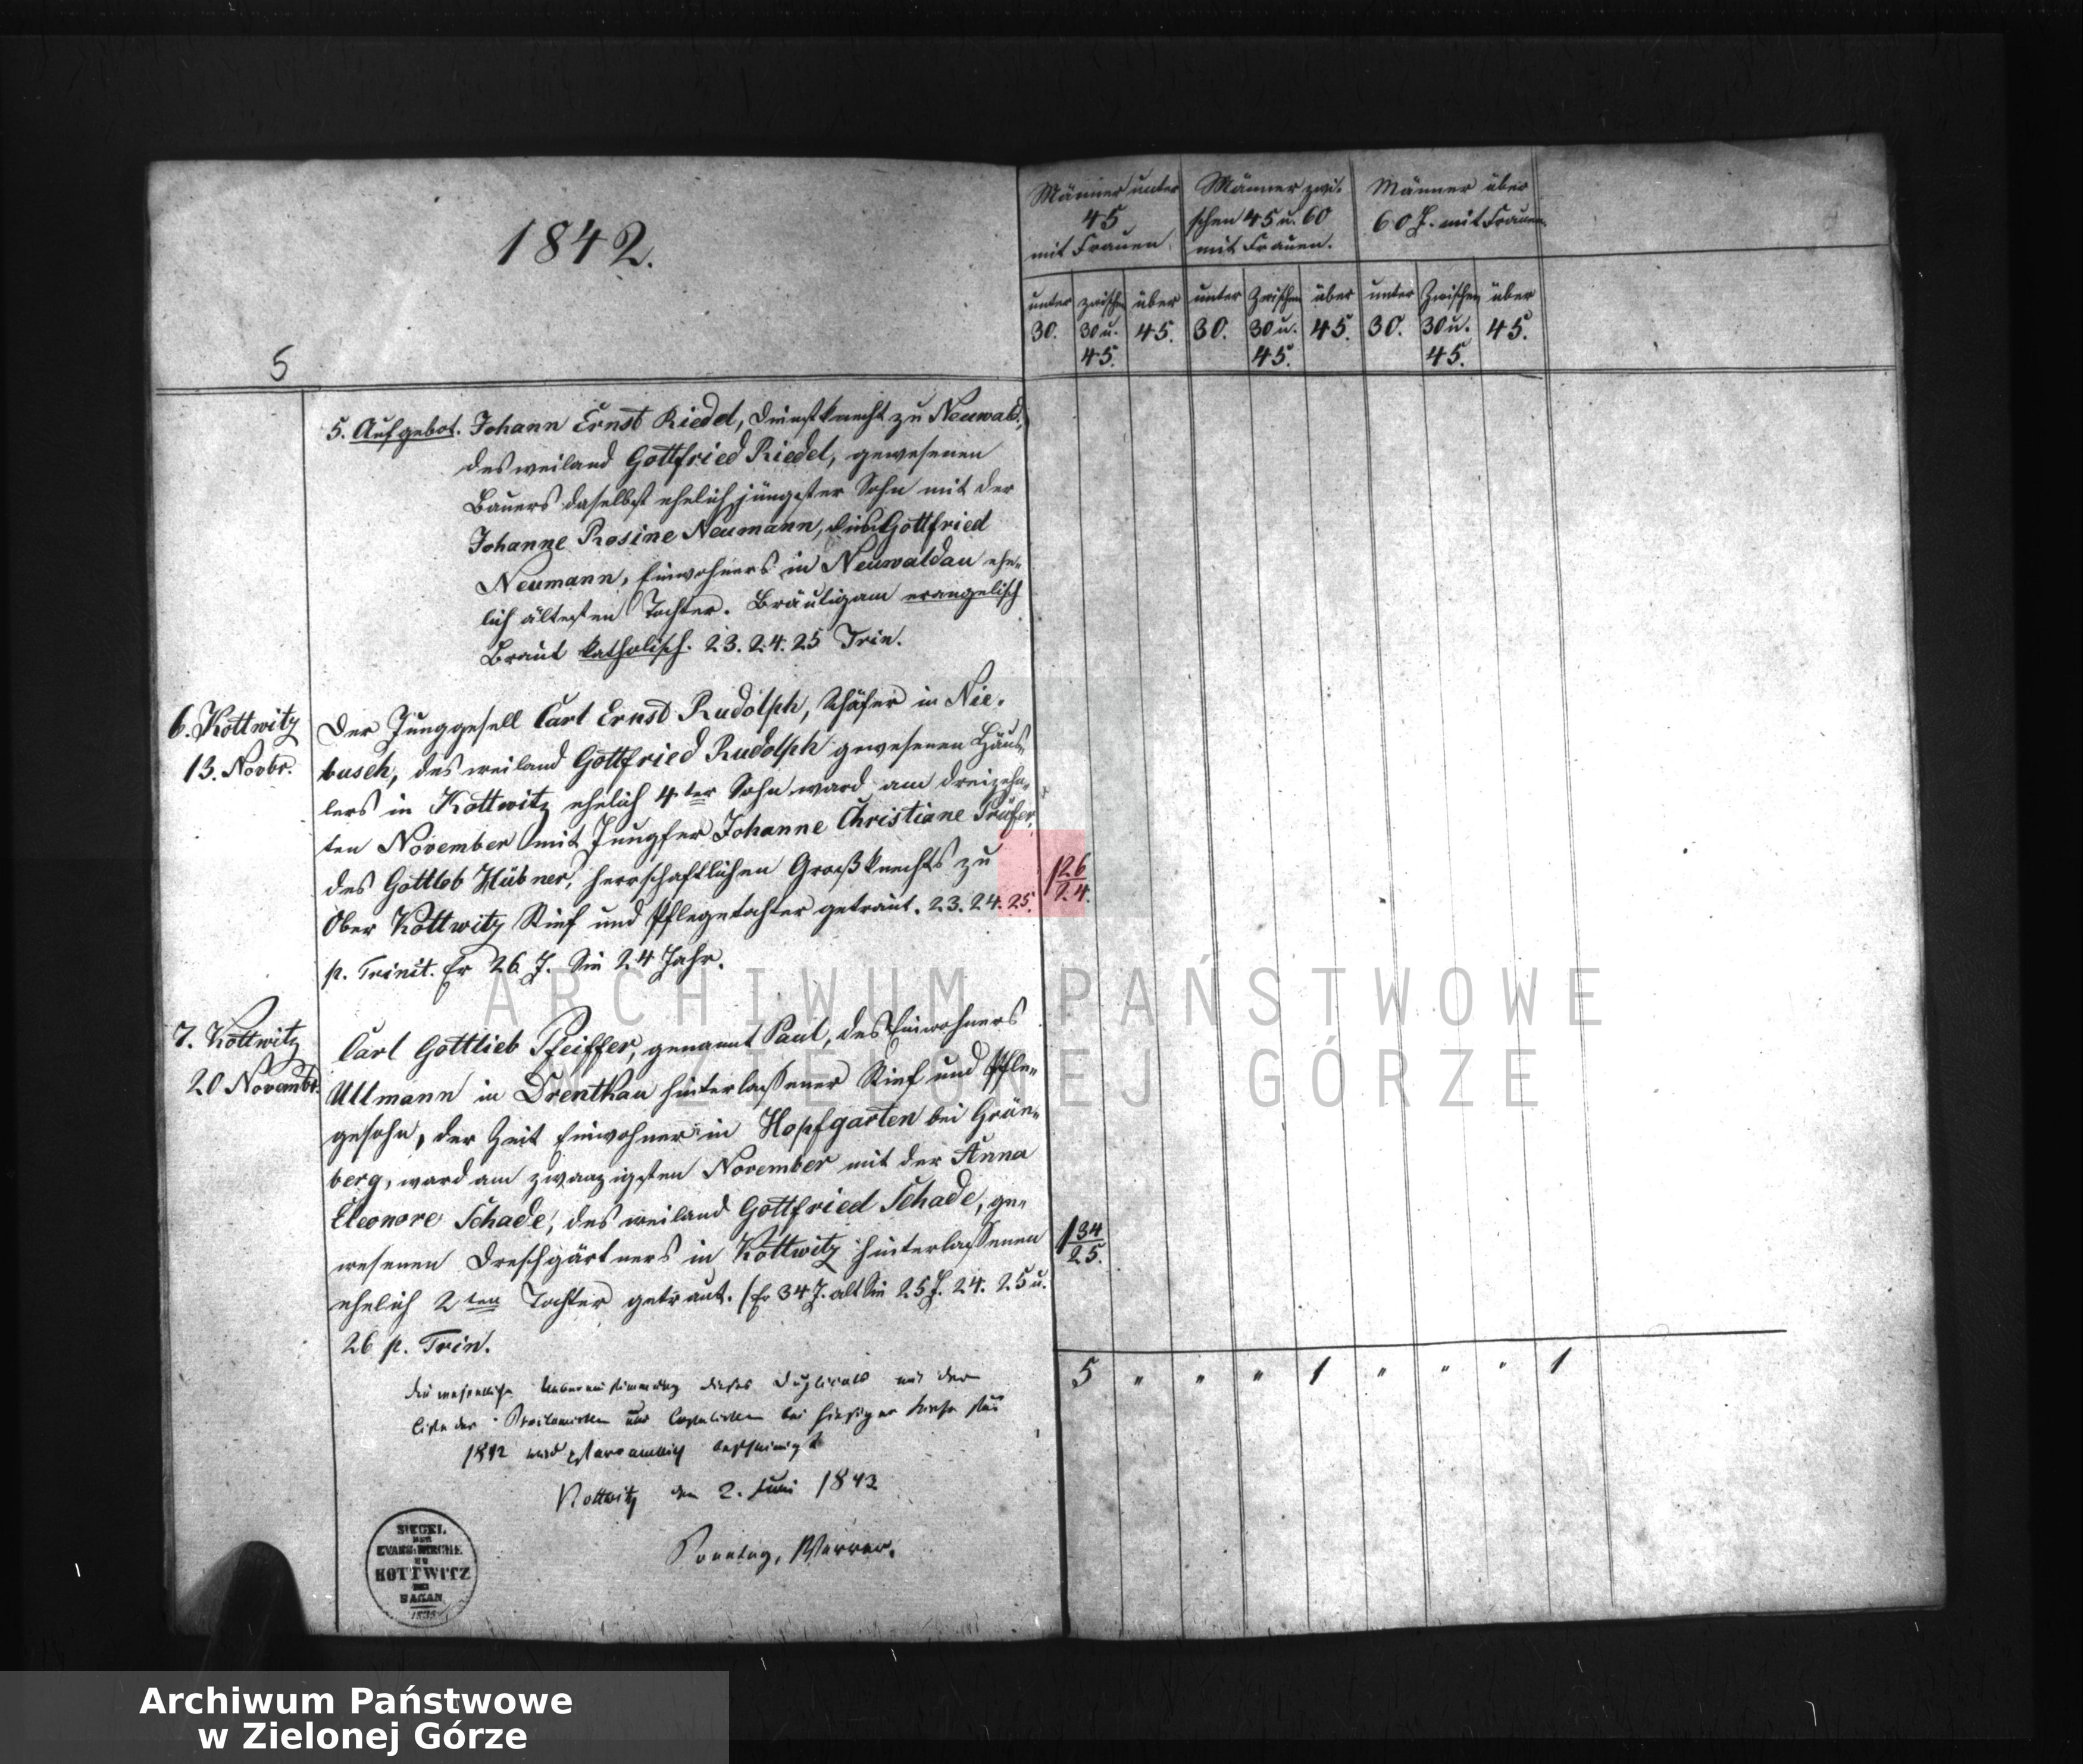 1842.
5
Männer unter
45
mit Frauen
Männer zwi-
schen 45 u. 60
mit Frauen.
Männer über
60 J. mit Frauen
unter
30.
zwischen
30 u.
45.
über
45.
unter
30.
Zwischen
30 u.
45.
über
45.
unter
30.
Zwischen
30 u.
45.
über
45.
5. Aufgebot. Johann Ernst Riedel, Dienstknecht zu Neuwald.,
des weiland Gottfried Riedel, gewesenen
Bauers daselbst ehelich jüngster Sohn mit der
Johanne Rosine Neumann, des Gottfried
Neumann, Einwohners in Neuwaldau ehe-
lich ältesten Tochter. Bräutigam evangelisch
Braut katholisch. 23. 24. 25 Trin.
6. Kottwitz
13. Novbr.
Der Junggesell Carl Ernst Rudolph, Schäfer in Nie-
busch, des weiland Gottfried Rudolph gewesenen Häus-
lers in Kottwitz ehelich 4ter Sohn ward am dreizehn-
ten November mit Jungfer Johanne Christiane Prüfer,
des Gottlob Hübner, herrschaftlichen Großknechts zu
Ober Kottwitz Stief und Pflegetochter getraut. 23. 24. 25.
p. Trinit. Er 26 J. Sie 24 Jahr.
1 26
24.
7. Kottwitz
20 Novembr.
Carl Gottlieb Pfeiffer, genannt Paul, des Einwohners
Ullmann in Drentkau hinterlassener Stief und Pfle-
gesohn, der Zeit Einwohner in Hopfgarten bei Grün-
berg, ward am zwanzigsten November mit der Anna
Eleonore Schade, des weiland Gottfried Schade, ge-
wesenen Dreschgärtners in Kottwitz hinterlassenen
ehelich 2ten Tochter getraut. (Er 34 J. alt Sie 25 J. 24. 25 u.
26 p. Trin.
1 34
25.
5 " " " 1 " " " 1
Die wesentliche Uebereinstimmung dieses Duplicats mit der
Liste der Proclamirten und Copulirten bei hiesiger Kirche
1842 wird pfarramtlich bescheinigt
Kottwitz den 2. Juni 1843
Sonntag, Pfarrer.
SIEGEL
DER
EVANG. KIRCHE
ZU
KOTTWITZ
BEI
SAGAN
1835
ARCHIWUM PAŃSTWOWE
W ZIELONEJ GÓRZE
Archiwum Państwowe
w Zielonej Górze